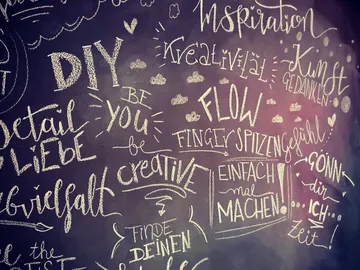 Inspiration
DIY
Kreativität
Kunst
GEDANKEN
BE
YOU
FLOW
Detail
LIEBE
be
FINGERSPITZENgefühl
creative
EINFACH
mal
MACHEN!
GÖNN
dir
..ICH..
Zeit!
FINDE
DEINEN
the